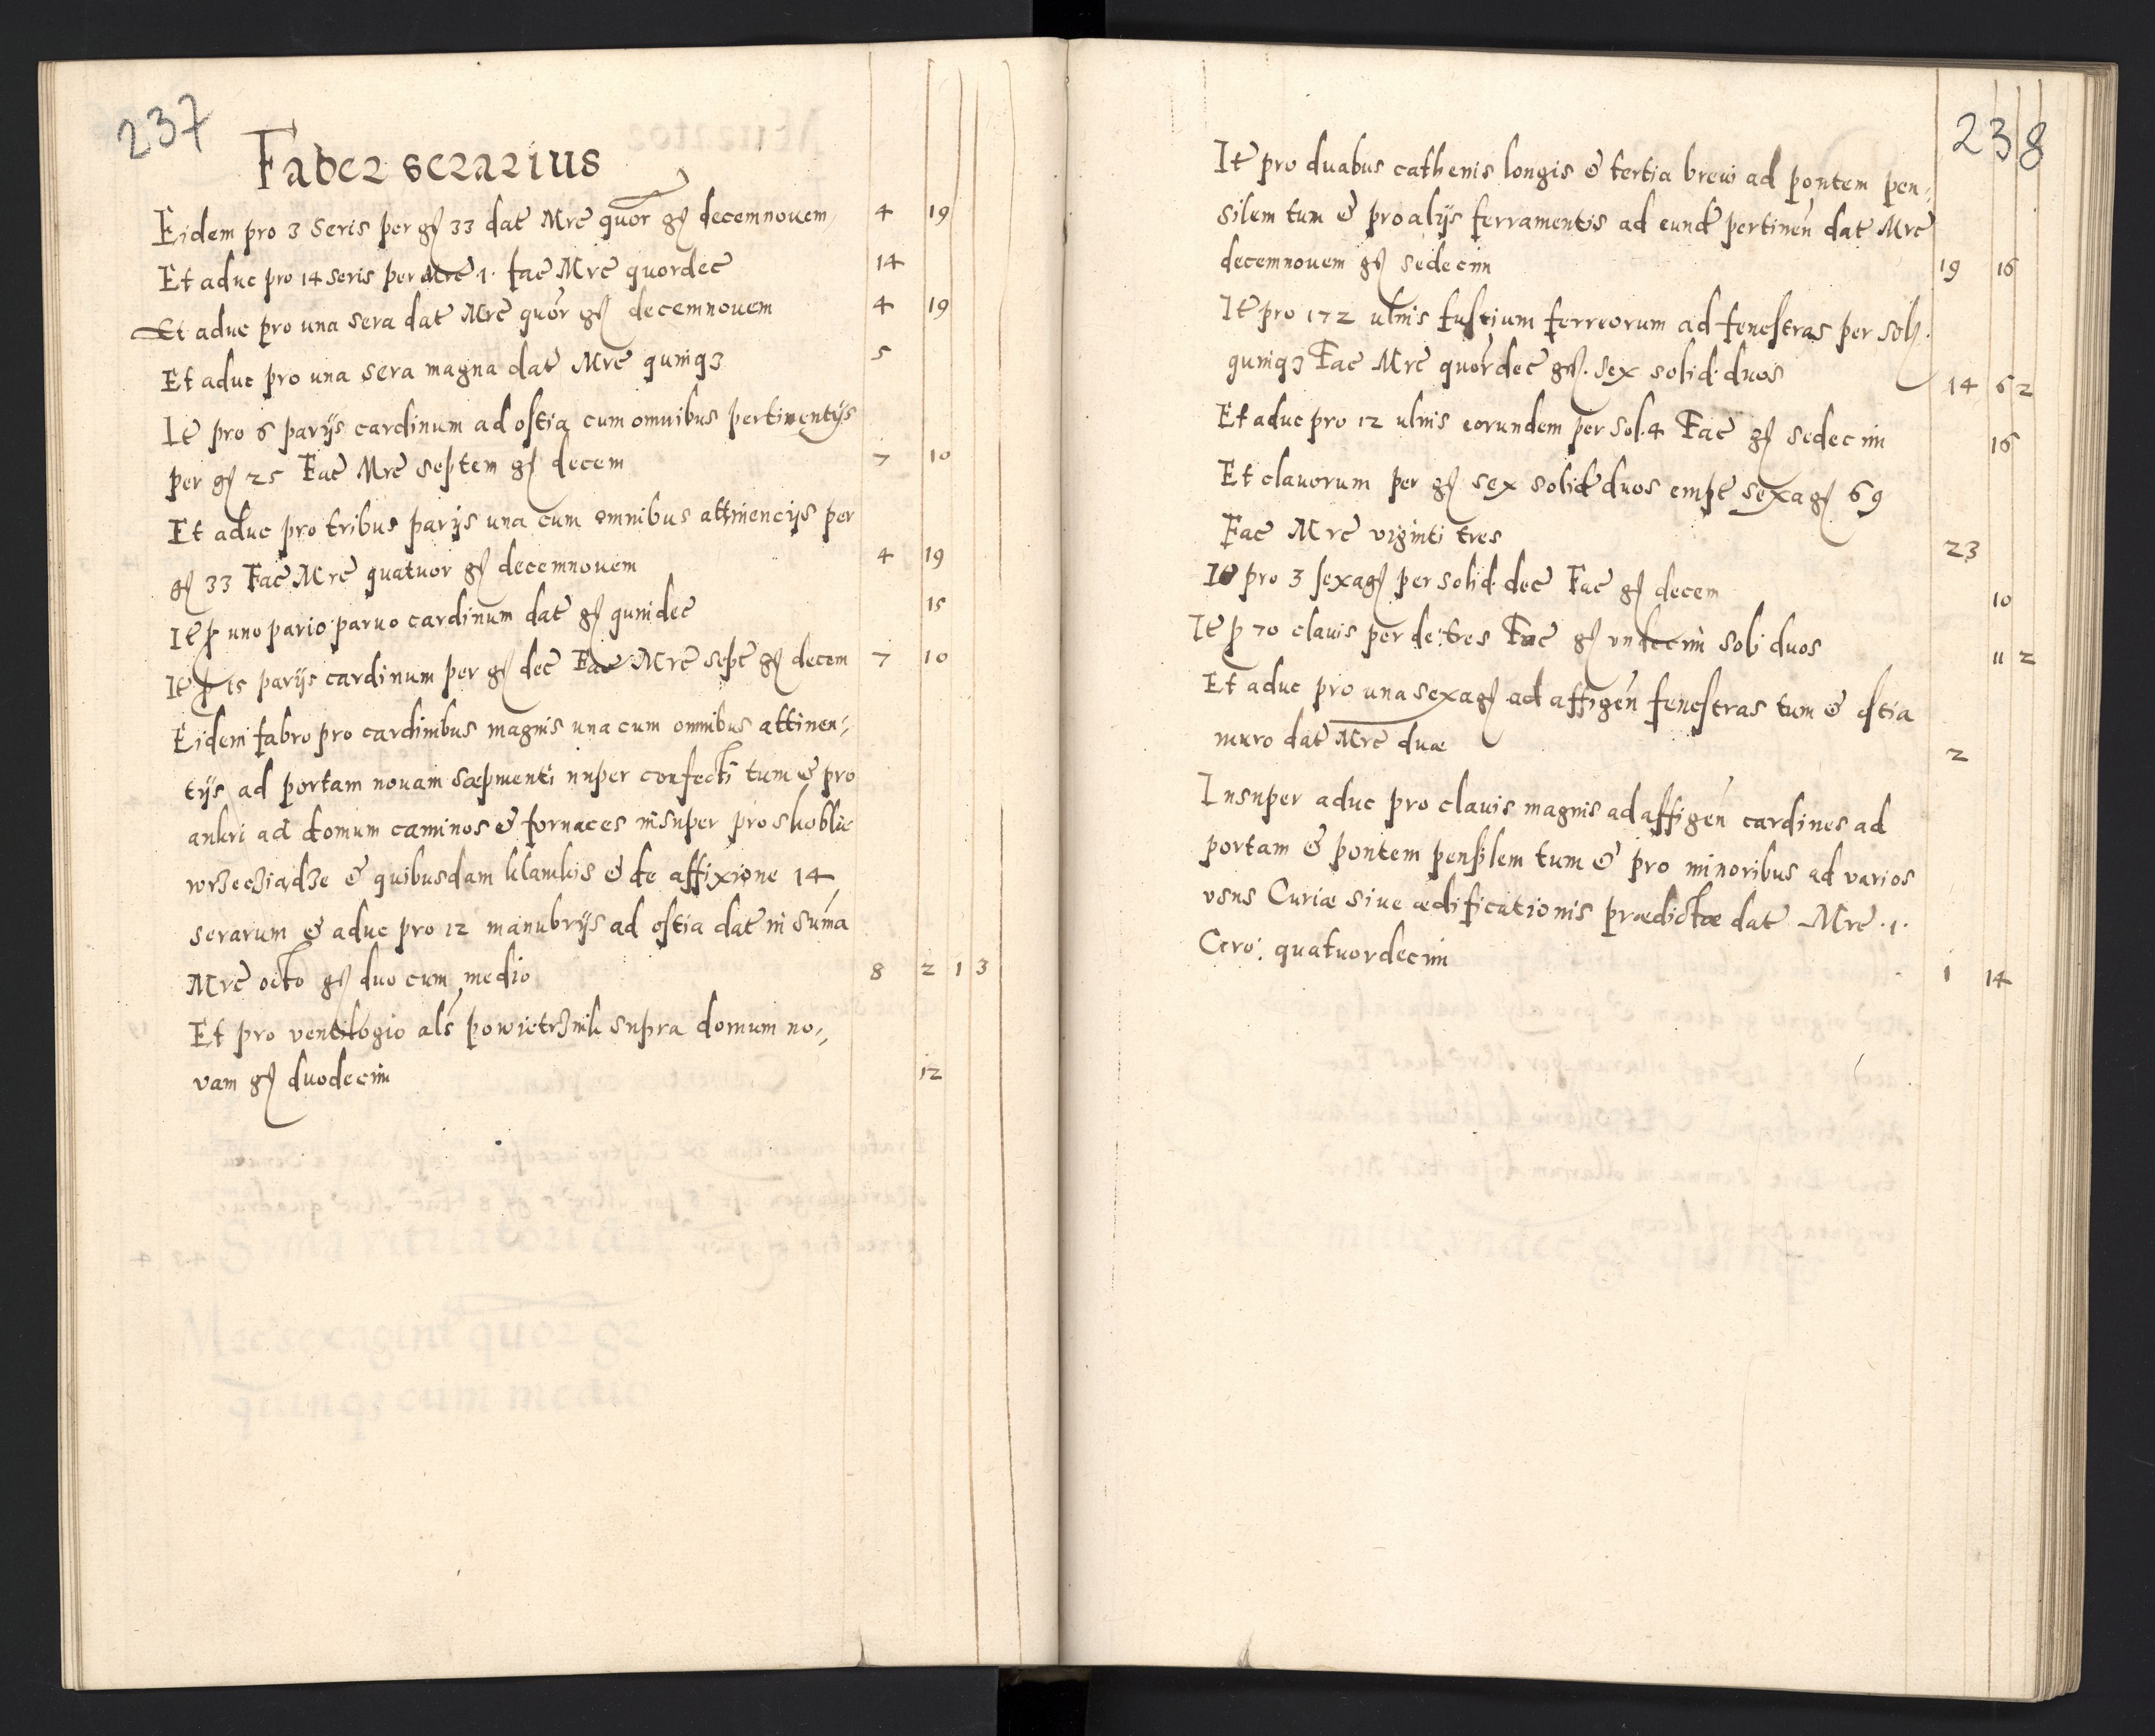 237
Faber serarius
Eidem pro 3 Seris per gs 33 dat Mrc quor gs decemnouem 4 19
Et aduc pro 14 seris per Mrc 1. fac Mrc quordec 14
Et aduc pro una sera dat Mrc quor gs decemnouem 4 19
Et aduc pro una sera magna dat Mrc quinq3 5
It pro 6 parijs cardinum ad ostia cum omnibus pertinentijs
per gs 25 Fac Mrc septem gs decem 7 10
Et aduc pro tribus parijs una cum omnibus attinencijs per
gs 33 Fac Mrc quatuor gs decemnouem 4 19
It p uno pario paruo cardinum dat gs quindec 15
It p 15 parijs cardinum per gs dec Fac Mrc sept gs decem 7 10
Eidem fabro pro cardinibus magnis una cum omnibus attinen⸗
tijs ad portam nouam sæpmenti nuper confecti tum & pro
ankri ad domum caminos & fornaces insuper pro skoblie
wrzecziadze & quibusdam klamkis & de affixione 14
serarum & aduc pro 12 manubrijs ad ostia dat in suma
Mrc octo gs duo cum medio 8 2 1 3
Et pro ventilogio als powietrznik supra domum no⸗
vam gs duodecim 12
238
It pro duabus cathenis longis & tertia brevi ad pontem pen⸗
silem tum & pro alijs ferramentis ad eund pertinen dat Mrc
decemnouem gs sedecim 19 16
It pro 172 ulnis fustium ferreorum ad fenestras per sol.
quinq3 Fac Mrc quordec gs. sex solid. duos 14 6 2
Et aduc pro 12 ulnis eorundem per sol. 4 Fac gs sedecim 16
Et clauorum per gs sex solid duos empt sexags 69
Fac Mrc viginti tres 23
It pro 3 sexags per solid. dec Fac gs decem 10
It p 70 clauis per de: tres Fac gs vndecim sol: duos 11 2
Et aduc pro una sexags ad affigen fenestras tum & ostia
muro dat Mrc duæ 2
Insuper aduc pro clauis magnis ad affigen cardines ad
portam & pontem pensilem tum & pro minoribus ad varios
vsus Curiæ siue ædificationis prædictæ dat Mrc .1.
Gro: quatuordecim 1 14